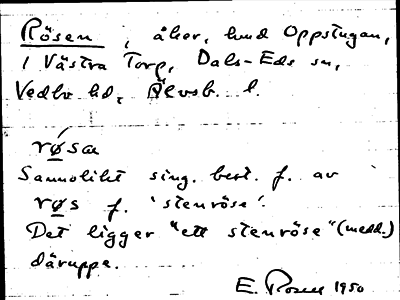 Rösen, åker, hmd Oppstugan,
i Västra Torp, Dals-Eds sn,
Vedbo hd, Älvsb. l.
rǿsa
Sannolikt sing. best. f. av
røs f. 'stenröse'.
Det ligger "ett stenröse" (medd.)
däruppe.
E. Rosen 1950